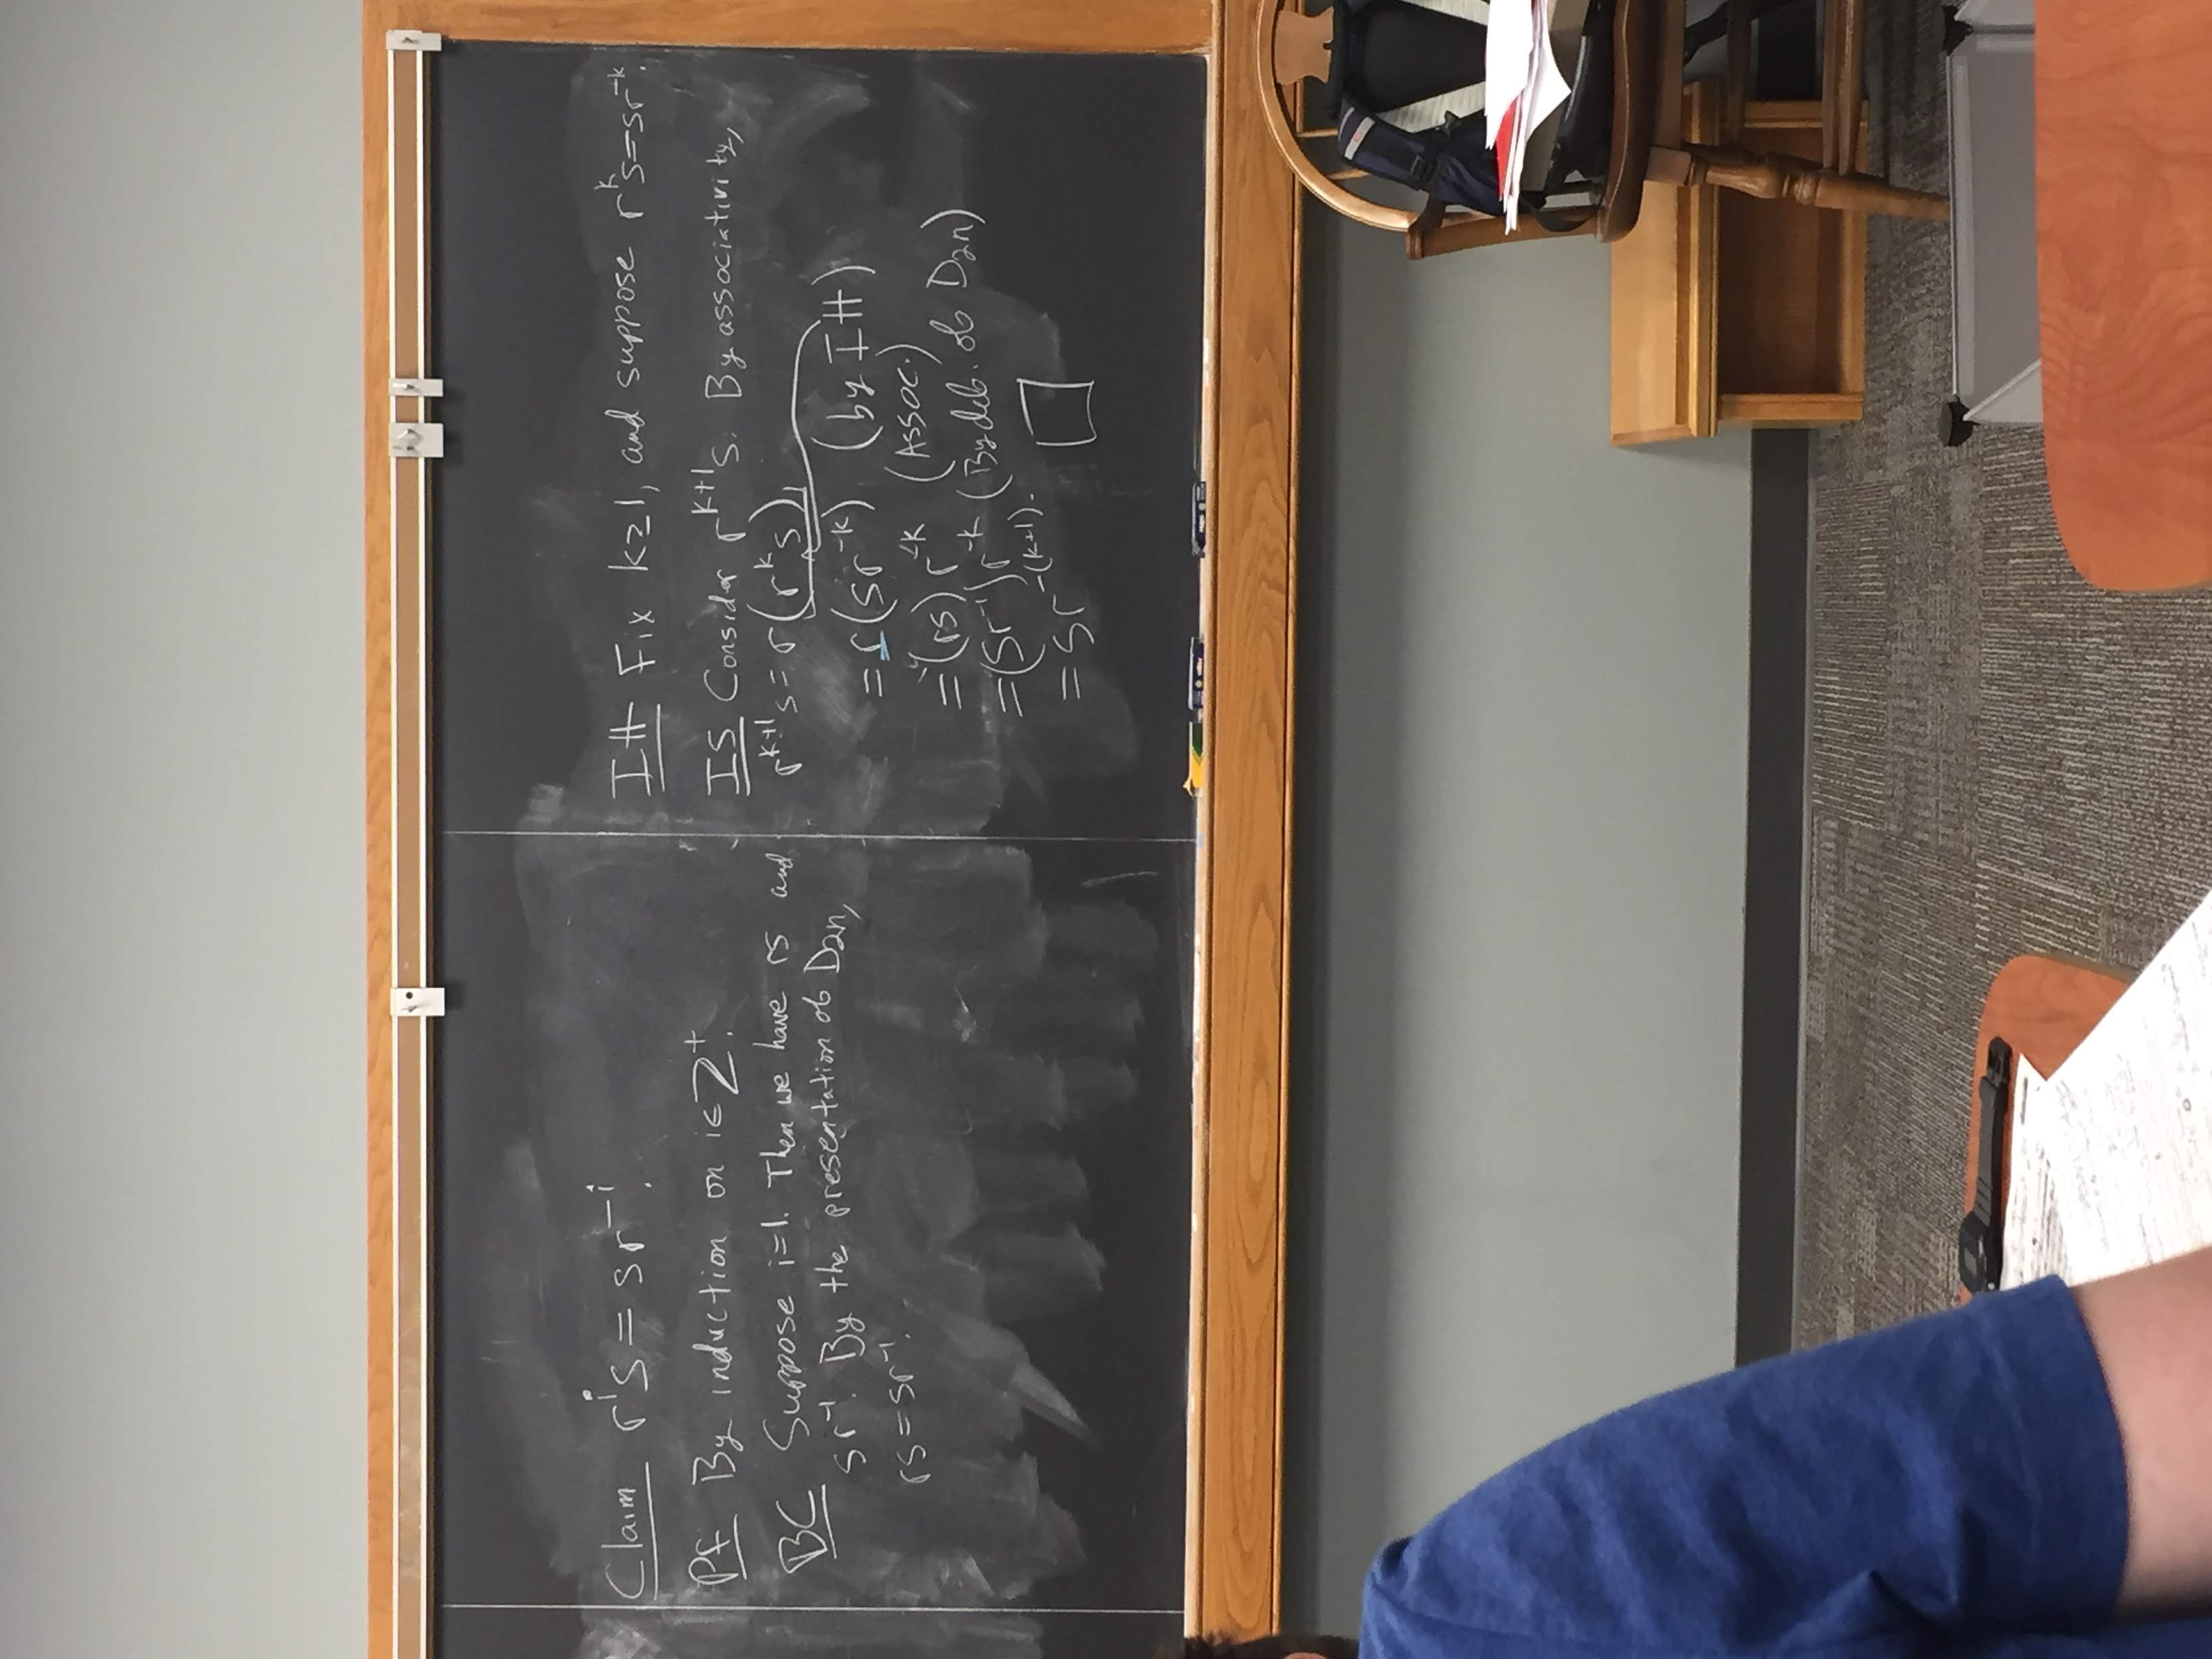 Claim rⁱs = sr⁻ⁱ.
Pf By induction on i∈Z⁺.
BC Suppose i=1. Then we have rs and
sr⁻¹. By the presentation of D₂ₙ,
rs = sr⁻¹.
IH Fix k≥1, and suppose rᵏs=sr⁻ᵏ.
IS Consider rᵏ⁺¹s. By associativity,
rᵏ⁺¹s = r(rᵏs),
= r(sr⁻ᵏ) (by IH)
= (rs)r⁻ᵏ (Assoc.)
= (sr⁻¹)r⁻ᵏ (By def. of D₂ₙ)
= sr⁻⁽ᵏ⁺¹⁾. □